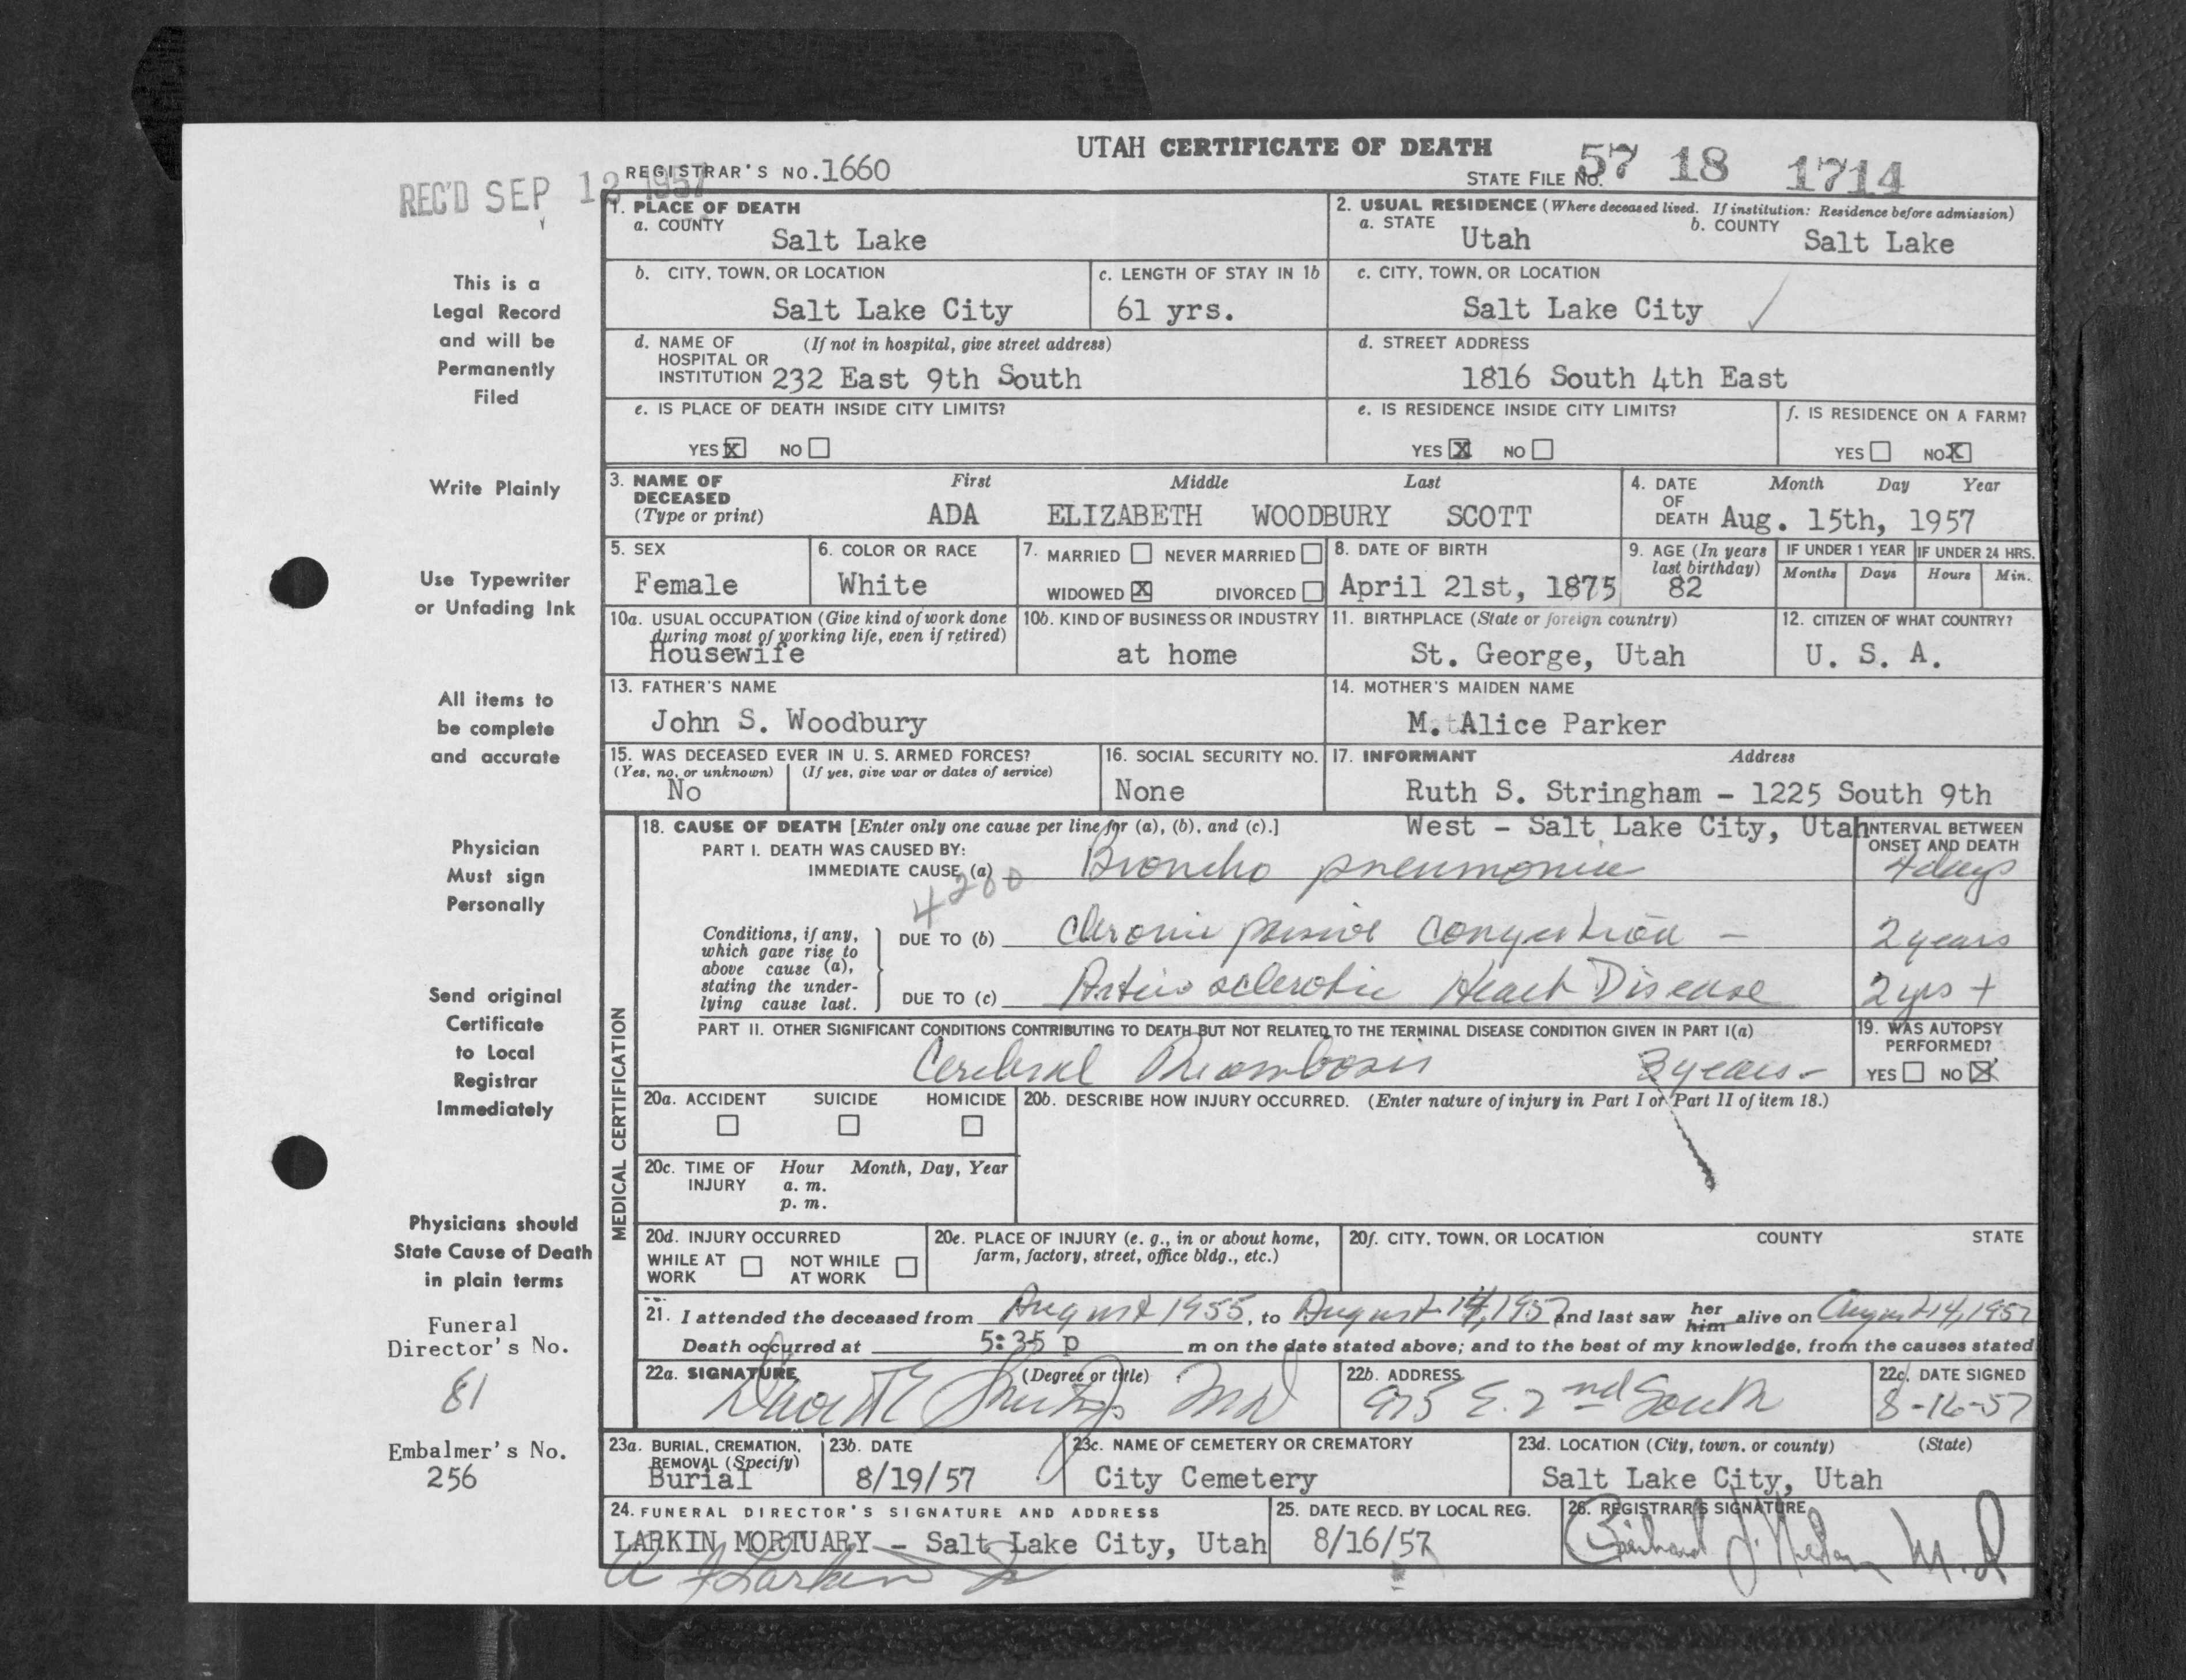 UTAH CERTIFICATE OF DEATH
REC'D SEP 12 1957
REGISTRAR'S NO. 1660
STATE FILE NO. 57 18 1714
This is a
Legal Record
and will be
Permanently
Filed
Write Plainly
Use Typewriter
or Unfading Ink
All items to
be complete
and accurate
Physician
Must sign
Personally
Send original
Certificate
to Local
Registrar
Immediately
Physicians should
State Cause of Death
in plain terms
Funeral
Director's No.
81
Embalmer's No.
256
1. PLACE OF DEATH
a. COUNTY
Salt Lake
2. USUAL RESIDENCE (Where deceased lived. If institution: Residence before admission)
a. STATE Utah b. COUNTY Salt Lake
b. CITY, TOWN, OR LOCATION
Salt Lake City
c. LENGTH OF STAY IN 1b
61 yrs.
c. CITY, TOWN, OR LOCATION
Salt Lake City
d. NAME OF (If not in hospital, give street address)
HOSPITAL OR
INSTITUTION 232 East 9th South
d. STREET ADDRESS
1816 South 4th East
e. IS PLACE OF DEATH INSIDE CITY LIMITS?
YES X NO
e. IS RESIDENCE INSIDE CITY LIMITS?
YES X NO
f. IS RESIDENCE ON A FARM?
YES NO X
3. NAME OF DECEASED (Type or print)
First Middle Last
ADA ELIZABETH WOODBURY SCOTT
4. DATE OF DEATH Month Day Year
Aug. 15th, 1957
5. SEX
Female
6. COLOR OR RACE
White
7. MARRIED NEVER MARRIED
WIDOWED X DIVORCED
8. DATE OF BIRTH
April 21st, 1875
9. AGE (In years last birthday)
82
IF UNDER 1 YEAR IF UNDER 24 HRS.
Months Days Hours Min.
10a. USUAL OCCUPATION (Give kind of work done
during most of working life, even if retired)
Housewife
10b. KIND OF BUSINESS OR INDUSTRY
at home
11. BIRTHPLACE (State or foreign country)
St. George, Utah
12. CITIZEN OF WHAT COUNTRY?
U. S. A.
13. FATHER'S NAME
John S. Woodbury
14. MOTHER'S MAIDEN NAME
M. Alice Parker
15. WAS DECEASED EVER IN U. S. ARMED FORCES?
(Yes, no, or unknown) (If yes, give war or dates of service)
No
16. SOCIAL SECURITY NO.
None
17. INFORMANT Address
Ruth S. Stringham - 1225 South 9th
West - Salt Lake City, Utah
MEDICAL CERTIFICATION
18. CAUSE OF DEATH [Enter only one cause per line for (a), (b), and (c).]
INTERVAL BETWEEN
ONSET AND DEATH
PART I. DEATH WAS CAUSED BY:
IMMEDIATE CAUSE (a) Broncho pneumonia 4 days
4200
Conditions, if any,
which gave rise to
above cause (a),
stating the under-
lying cause last.
DUE TO (b) Chronic passive congestion - 2 years
DUE TO (c) Arteriosclerotic Heart Disease 2 yrs +
PART II. OTHER SIGNIFICANT CONDITIONS CONTRIBUTING TO DEATH BUT NOT RELATED TO THE TERMINAL DISEASE CONDITION GIVEN IN PART I(a)
Cerebral Thrombosis 3 years -
19. WAS AUTOPSY
PERFORMED?
YES NO X
20a. ACCIDENT SUICIDE HOMICIDE
20b. DESCRIBE HOW INJURY OCCURRED. (Enter nature of injury in Part I or Part II of item 18.)
20c. TIME OF INJURY Hour Month, Day, Year
a. m.
p. m.
20d. INJURY OCCURRED
WHILE AT WORK NOT WHILE AT WORK
20e. PLACE OF INJURY (e. g., in or about home,
farm, factory, street, office bldg., etc.)
20f. CITY, TOWN, OR LOCATION COUNTY STATE
21. I attended the deceased from August 1955, to August 14, 1957 and last saw her him alive on August 14, 1957
Death occurred at 5:35 p m on the date stated above; and to the best of my knowledge, from the causes stated
22a. SIGNATURE (Degree or title)
MD
22b. ADDRESS
975 E. 2nd South
22c. DATE SIGNED
8-16-57
23a. BURIAL, CREMATION,
REMOVAL (Specify)
Burial
23b. DATE
8/19/57
23c. NAME OF CEMETERY OR CREMATORY
City Cemetery
23d. LOCATION (City, town, or county) (State)
Salt Lake City, Utah
24. FUNERAL DIRECTOR'S SIGNATURE AND ADDRESS
LARKIN MORTUARY - Salt Lake City, Utah
25. DATE RECD. BY LOCAL REG.
8/16/57
26. REGISTRAR'S SIGNATURE
M.D.